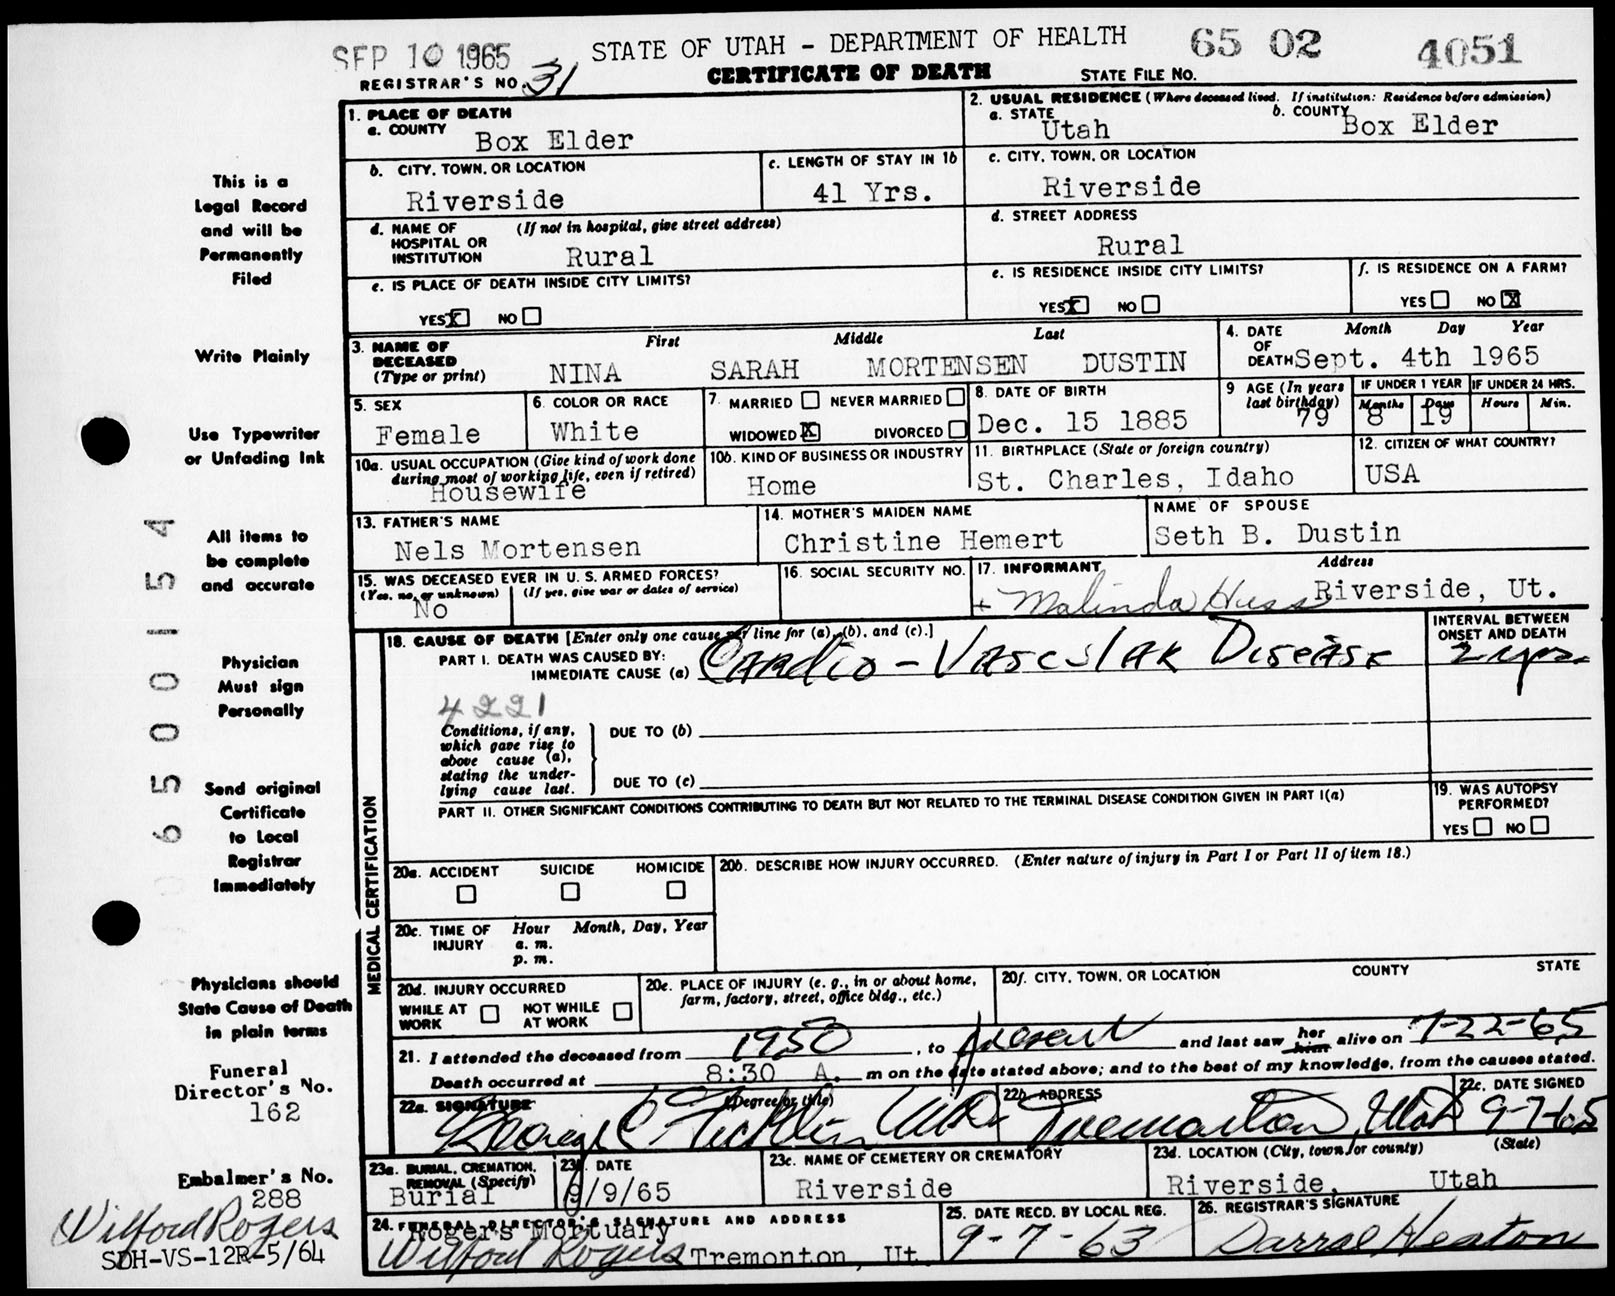 SEP 10 1965
STATE OF UTAH - DEPARTMENT OF HEALTH
65 02 4051
REGISTRAR'S NO. 31
CERTIFICATE OF DEATH
STATE FILE NO.
This is a
Legal Record
and will be
Permanently
Filed
Write Plainly
Use Typewriter
or Unfading Ink
All items to
be complete
and accurate
Physician
Must sign
Personally
Send original
Certificate
to Local
Registrar
Immediately
Physicians should
State Cause of Death
in plain terms
Funeral
Director's No.
162
Embalmer's No.
288
Wilford Rogers
SDH-VS-12R-5/64
6500154
1. PLACE OF DEATH
a. COUNTY
Box Elder
2. USUAL RESIDENCE (Where deceased lived. If institution: Residence before admission)
a. STATE
Utah
b. COUNTY
Box Elder
b. CITY, TOWN, OR LOCATION
Riverside
c. LENGTH OF STAY IN 1b
41 Yrs.
c. CITY, TOWN, OR LOCATION
Riverside
d. NAME OF HOSPITAL OR INSTITUTION
(If not in hospital, give street address)
Rural
d. STREET ADDRESS
Rural
e. IS PLACE OF DEATH INSIDE CITY LIMITS?
YES X NO
e. IS RESIDENCE INSIDE CITY LIMITS?
YES X NO
f. IS RESIDENCE ON A FARM?
YES NO X
3. NAME OF DECEASED
(Type or print)
First Middle Last
NINA SARAH MORTENSEN DUSTIN
4. DATE OF DEATH
Month Day Year
Sept. 4th 1965
5. SEX
Female
6. COLOR OR RACE
White
7. MARRIED NEVER MARRIED
WIDOWED X DIVORCED
8. DATE OF BIRTH
Dec. 15 1885
9 AGE (In years last birthday)
79
IF UNDER 1 YEAR
Months Days
8 19
IF UNDER 24 HRS.
Hours Min.
10a. USUAL OCCUPATION (Give kind of work done during most of working life, even if retired)
Housewife
10b. KIND OF BUSINESS OR INDUSTRY
Home
11. BIRTHPLACE (State or foreign country)
St. Charles, Idaho
12. CITIZEN OF WHAT COUNTRY?
USA
13. FATHER'S NAME
Nels Mortensen
14. MOTHER'S MAIDEN NAME
Christine Hemert
NAME OF SPOUSE
Seth B. Dustin
15. WAS DECEASED EVER IN U.S. ARMED FORCES?
(Yes, no, or unknown) (If yes, give war or dates of service)
No
16. SOCIAL SECURITY NO.
17. INFORMANT
Malinda Huss
Address
Riverside, Ut.
MEDICAL CERTIFICATION
18. CAUSE OF DEATH [Enter only one cause per line for (a), (b), and (c).]
PART I. DEATH WAS CAUSED BY:
IMMEDIATE CAUSE (a)
Cardio-Vascular Disease
INTERVAL BETWEEN ONSET AND DEATH
2 yrs.
4221
Conditions, if any,
which gave rise to
above cause (a),
stating the under-
lying cause last.
DUE TO (b)
DUE TO (c)
PART II. OTHER SIGNIFICANT CONDITIONS CONTRIBUTING TO DEATH BUT NOT RELATED TO THE TERMINAL DISEASE CONDITION GIVEN IN PART I(a)
19. WAS AUTOPSY PERFORMED?
YES NO
20a. ACCIDENT SUICIDE HOMICIDE
20b. DESCRIBE HOW INJURY OCCURRED. (Enter nature of injury in Part I or Part II of item 18.)
20c. TIME OF INJURY
Hour Month, Day, Year
a. m.
p. m.
20d. INJURY OCCURRED
WHILE AT WORK NOT WHILE AT WORK
20e. PLACE OF INJURY (e. g., in or about home, farm, factory, street, office bldg., etc.)
20f. CITY, TOWN, OR LOCATION COUNTY STATE
21. I attended the deceased from 1950, to present and last saw her him alive on 7-22-65
Death occurred at 8:30 A. m on the date stated above; and to the best of my knowledge, from the causes stated.
22a. SIGNATURE (Degree or title)
22b. ADDRESS
Tremonton, Utah
22c. DATE SIGNED
9-7-65
23a. BURIAL, CREMATION, REMOVAL (Specify)
Burial
23b. DATE
9/9/65
23c. NAME OF CEMETERY OR CREMATORY
Riverside
23d. LOCATION (City, town, or county) (State)
Riverside, Utah
24. FUNERAL DIRECTOR'S SIGNATURE AND ADDRESS
Rogers Mortuary
Wilford Rogers Tremonton, Ut.
25. DATE RECD. BY LOCAL REG.
9-7-63
26. REGISTRAR'S SIGNATURE
Darral Heaton